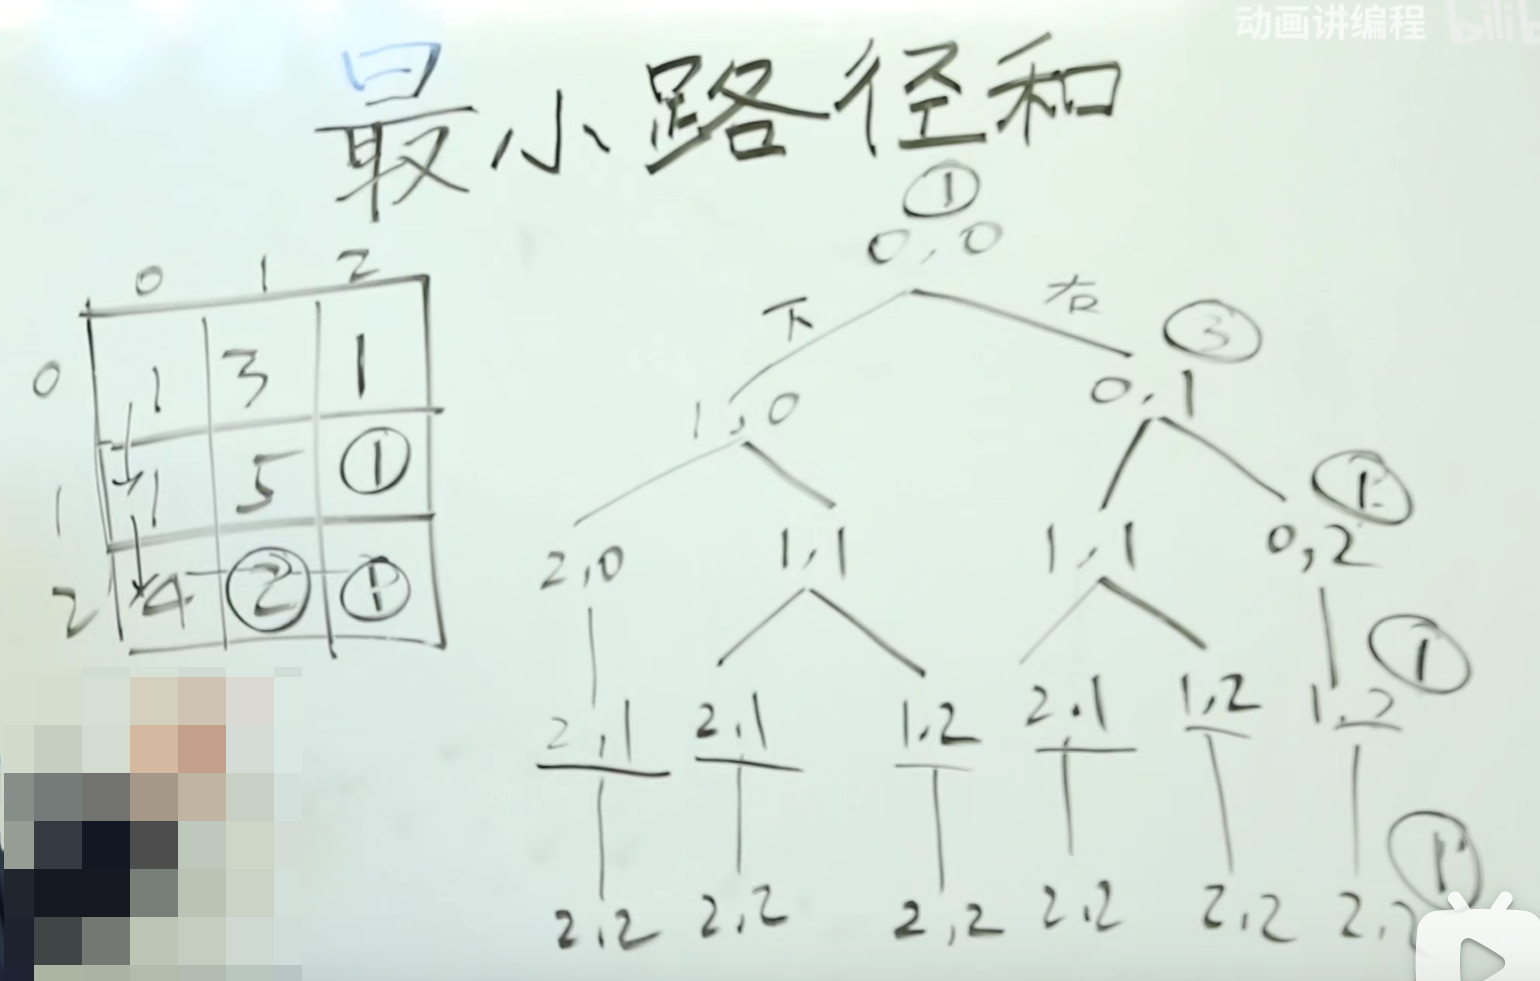 动画讲编程 bilib
最小路径和
0 1 2
0 1 3 1
1 1 5 ①
2 4 ② ①
①
0,0
下 右
③
1,0 0,1
①
2,0 1,1 1,1 0,2
①
2,1 2,1 1,2 2,1 1,2 1,2
①
2,2 2,2 2,2 2,2 2,2 2,2